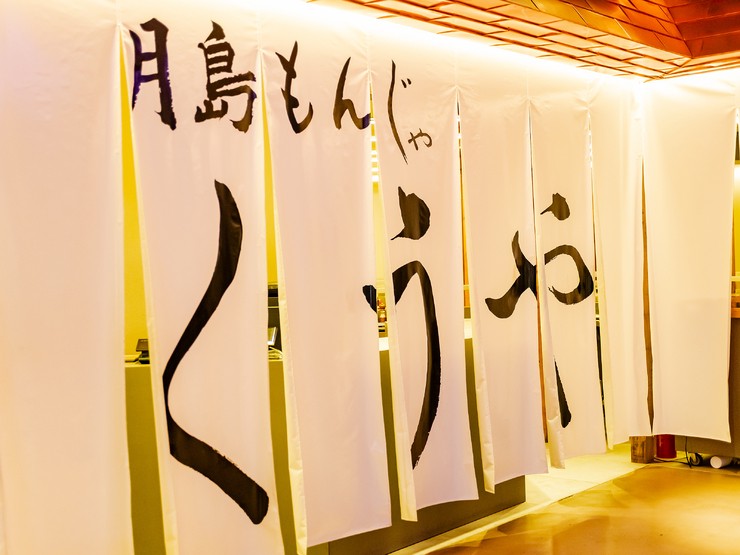 月島もんじゃ
くうや